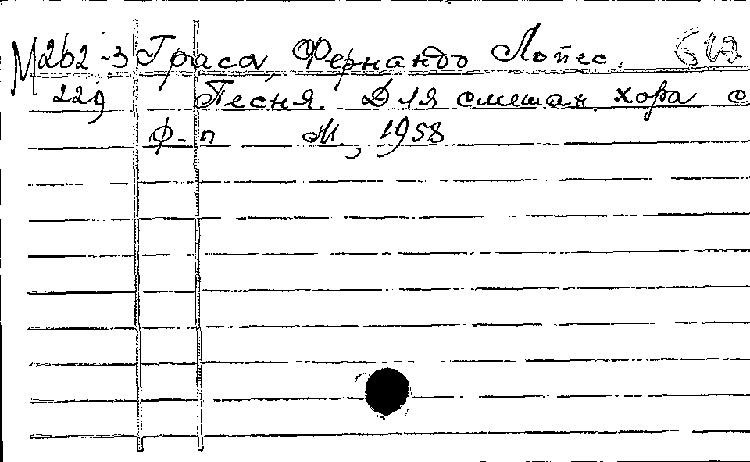 М262-3 Граса, Фернандо Лопес.
229 Песня. Для смешан. хора с
ф-п М., 1958